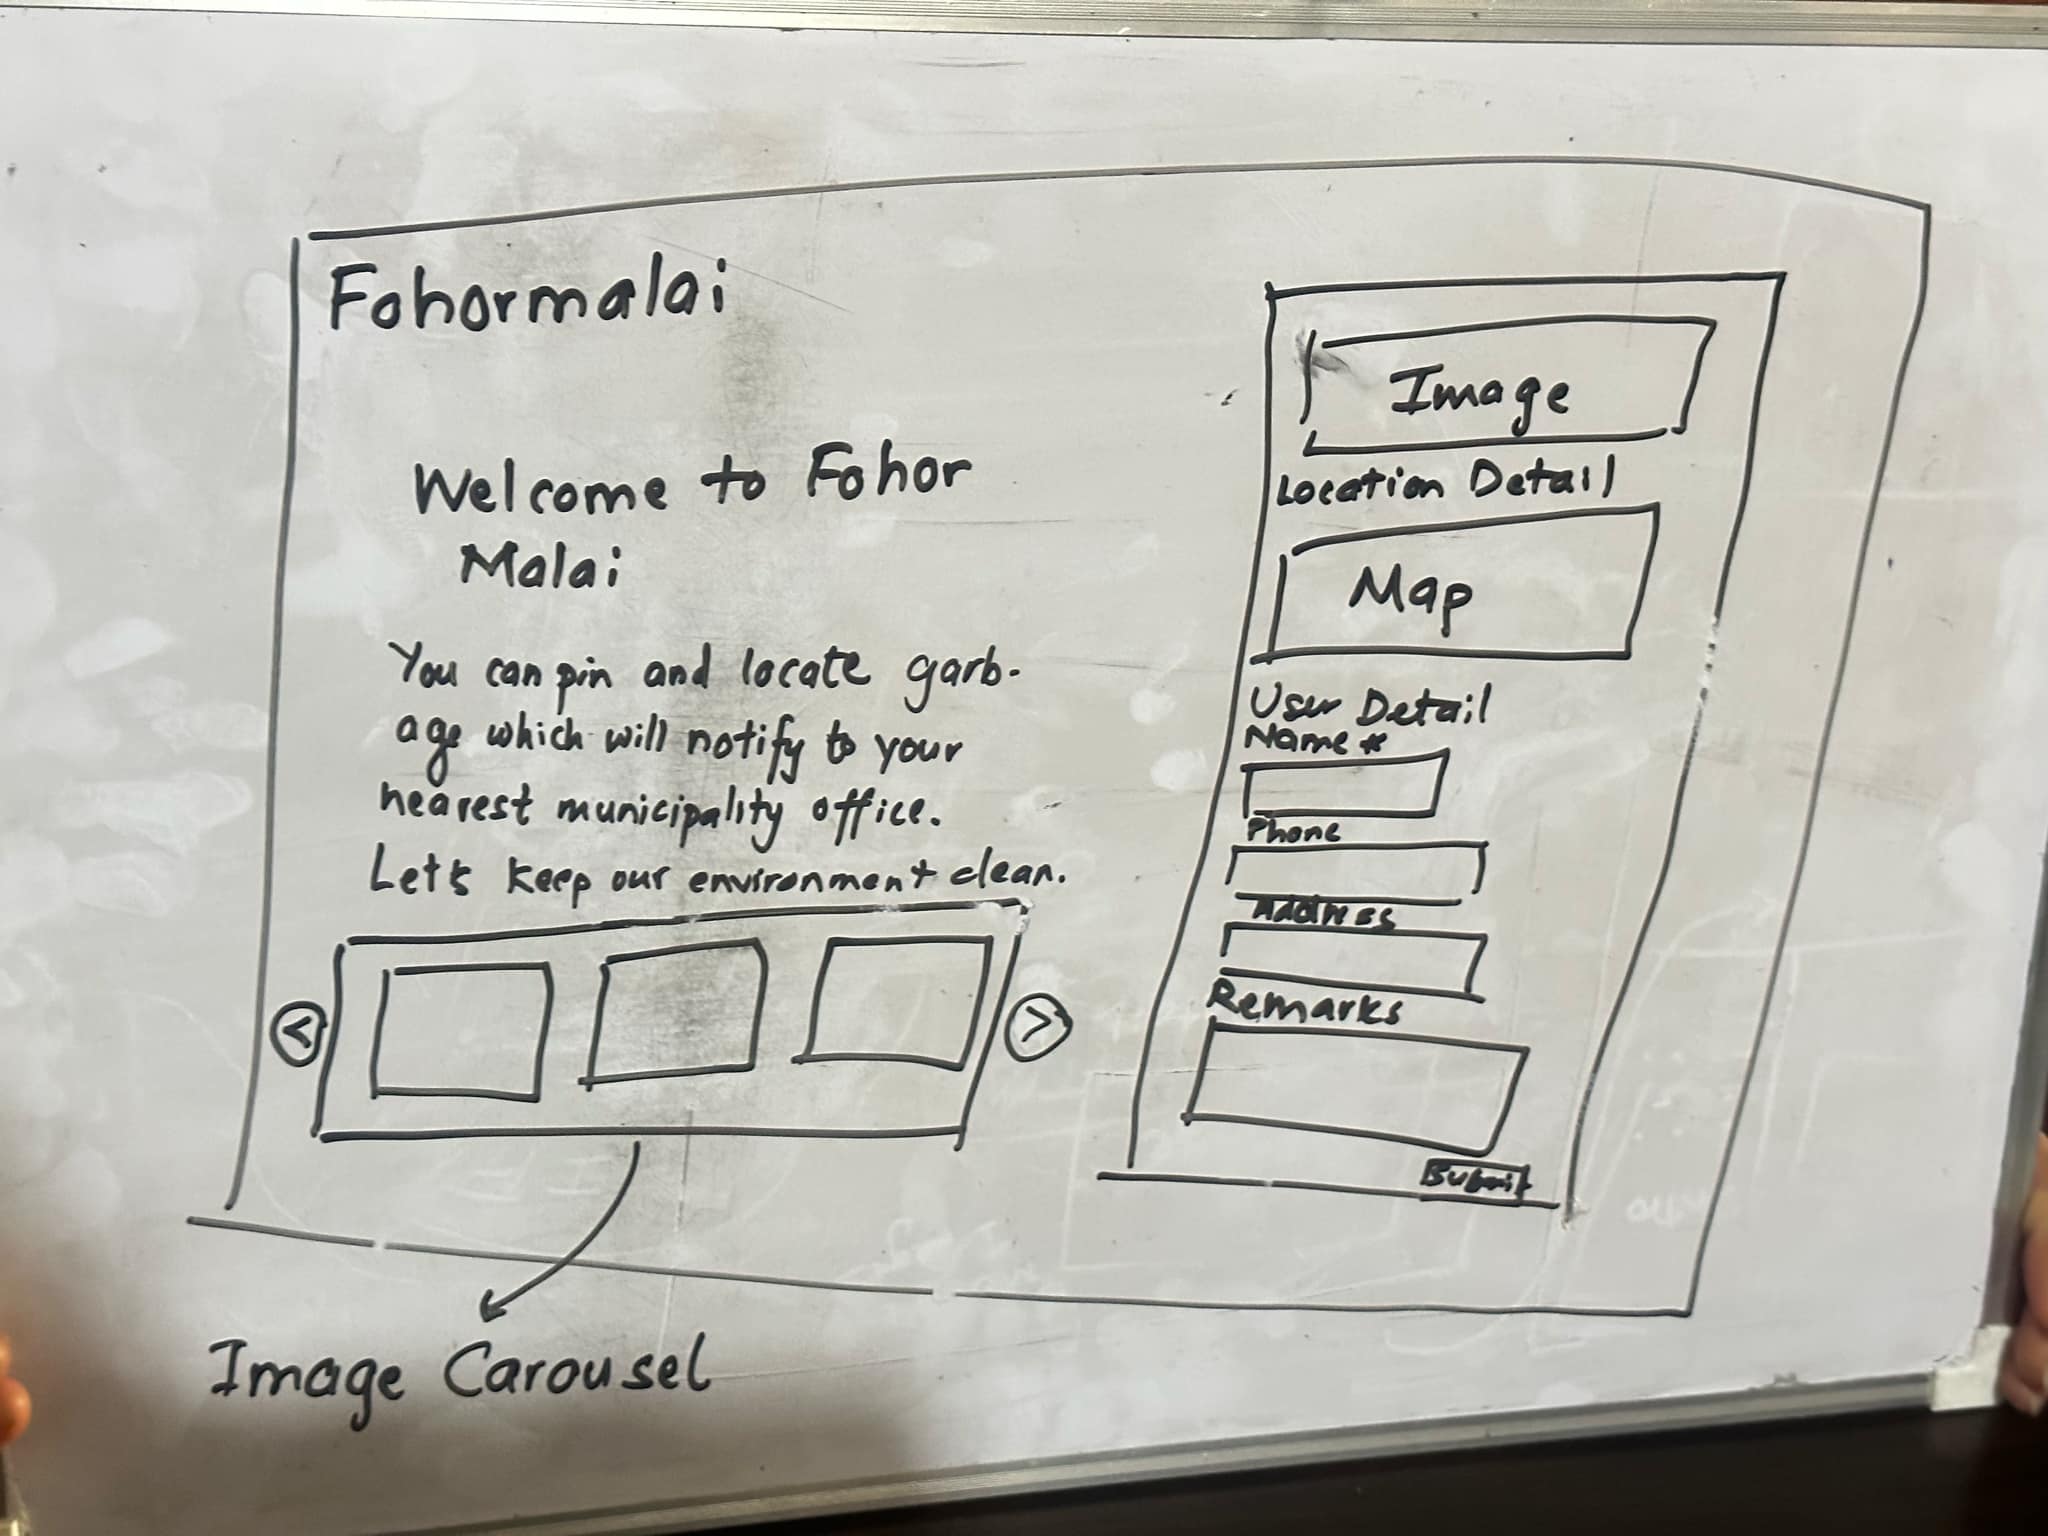 Fohormalai
Welcome to Fohor
Malai
You can pin and locate garb-
age which will notify to your
nearest municipality office.
Let's keep our environment clean.
<
>
Image Carousel
Image
Location Detail
Map
User Detail
Name *
Phone
Address
Remarks
Submit